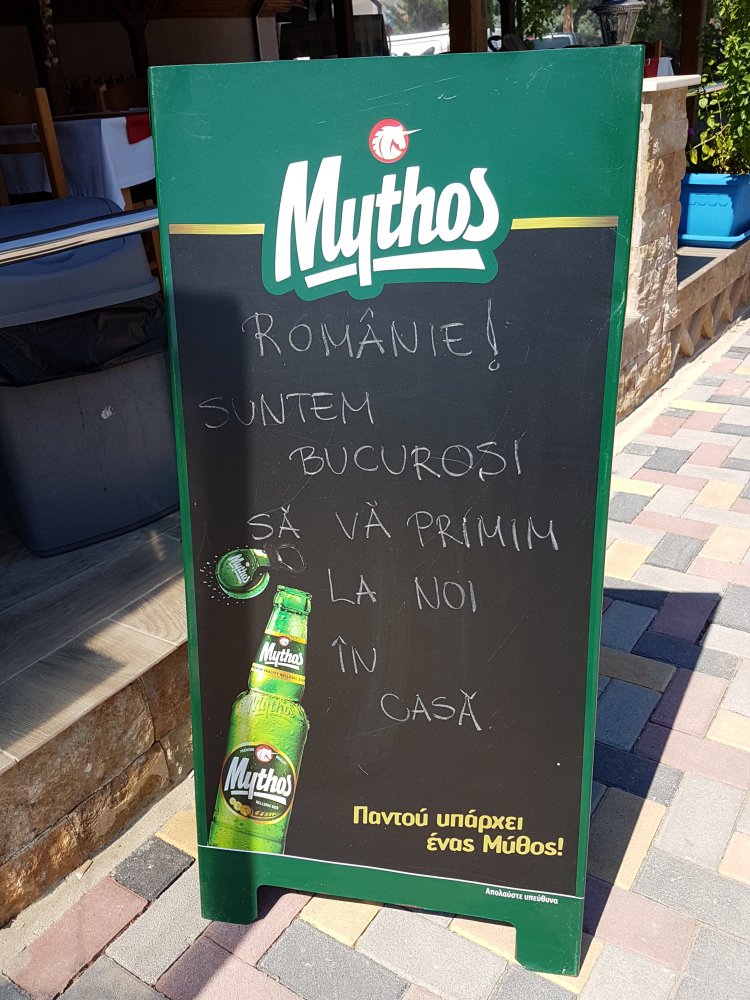 Mythos
ROMÂNIE!
SUNTEM
BUCUROȘI
SĂ VĂ PRIMIM
LA NOI
ÎN
CASĂ
Mythos
Mythos
Mythos
Mythos
Παντού υπάρχει
ένας Μύθος!
Απολαύστε υπεύθυνα